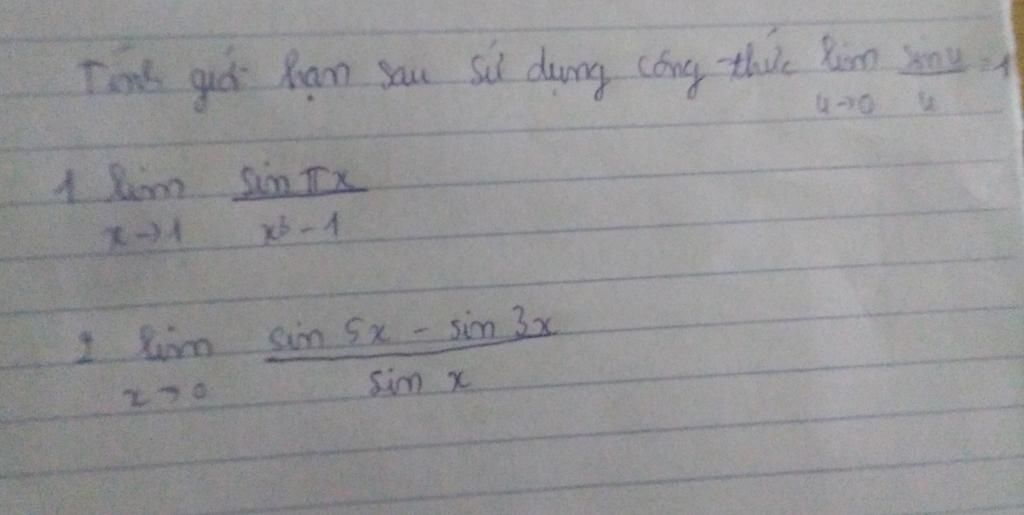 Tính giới hạn sau sử dụng công thức lim sinu = 1
u→0 u
1 lim sin πx
x→1 x³ - 1
2 lim sin 5x - sin 3x
x→0 sin x